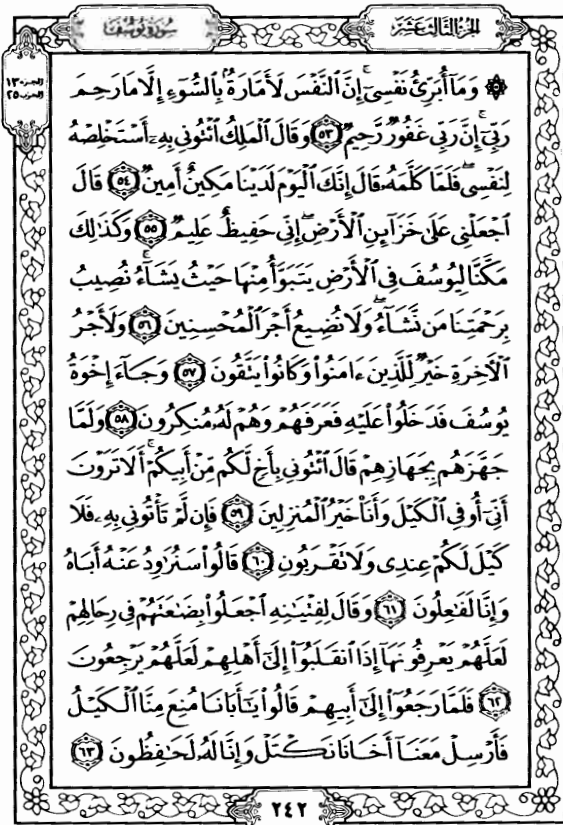 سُورَةُ يُوسُفَ
الجزء الثالث عشر
الجزء ١٣
الحزب ٢٥
۞ وَمَآ أُبَرِّئُ نَفْسِىٓ ۚ إِنَّ ٱلنَّفْسَ لَأَمَّارَةٌۢ بِٱلسُّوٓءِ إِلَّا مَا رَحِمَ
رَبِّىٓ ۚ إِنَّ رَبِّى غَفُورٌ رَّحِيمٌ ٥٣ وَقَالَ ٱلْمَلِكُ ٱئْتُونِى بِهِۦٓ أَسْتَخْلِصْهُ
لِنَفْسِى ۖ فَلَمَّا كَلَّمَهُۥ قَالَ إِنَّكَ ٱلْيَوْمَ لَدَيْنَا مَكِينٌ أَمِينٌ ٥٤ قَالَ
ٱجْعَلْنِى عَلَىٰ خَزَآئِنِ ٱلْأَرْضِ ۖ إِنِّى حَفِيظٌ عَلِيمٌ ٥٥ وَكَذَٰلِكَ
مَكَّنَّا لِيُوسُفَ فِى ٱلْأَرْضِ يَتَبَوَّأُ مِنْهَا حَيْثُ يَشَآءُ ۚ نُصِيبُ
بِرَحْمَتِنَا مَن نَّشَآءُ ۖ وَلَا نُضِيعُ أَجْرَ ٱلْمُحْسِنِينَ ٥٦ وَلَأَجْرُ
ٱلْـَٔاخِرَةِ خَيْرٌ لِّلَّذِينَ ءَامَنُوا۟ وَكَانُوا۟ يَتَّقُونَ ٥٧ وَجَآءَ إِخْوَةُ
يُوسُفَ فَدَخَلُوا۟ عَلَيْهِ فَعَرَفَهُمْ وَهُمْ لَهُۥ مُنكِرُونَ ٥٨ وَلَمَّا
جَهَّزَهُم بِجَهَازِهِمْ قَالَ ٱئْتُونِى بِأَخٍ لَّكُم مِّنْ أَبِيكُمْ ۚ أَلَا تَرَوْنَ
أَنِّىٓ أُوفِى ٱلْكَيْلَ وَأَنَا۠ خَيْرُ ٱلْمُنزِلِينَ ٥٩ فَإِن لَّمْ تَأْتُونِى بِهِۦ فَلَا
كَيْلَ لَكُمْ عِندِى وَلَا تَقْرَبُونِ ٦٠ قَالُوا۟ سَنُرَٰوِدُ عَنْهُ أَبَاهُ
وَإِنَّا لَفَـٰعِلُونَ ٦١ وَقَالَ لِفِتْيَـٰنِهِ ٱجْعَلُوا۟ بِضَـٰعَتَهُمْ فِى رِحَالِهِمْ
لَعَلَّهُمْ يَعْرِفُونَهَآ إِذَا ٱنقَلَبُوٓا۟ إِلَىٰٓ أَهْلِهِمْ لَعَلَّهُمْ يَرْجِعُونَ
٦٢ فَلَمَّا رَجَعُوٓا۟ إِلَىٰٓ أَبِيهِمْ قَالُوا۟ يَـٰٓأَبَانَا مُنِعَ مِنَّا ٱلْكَيْلُ
فَأَرْسِلْ مَعَنَآ أَخَانَا نَكْتَلْ وَإِنَّا لَهُۥ لَحَـٰفِظُونَ ٦٣
٢٤٢